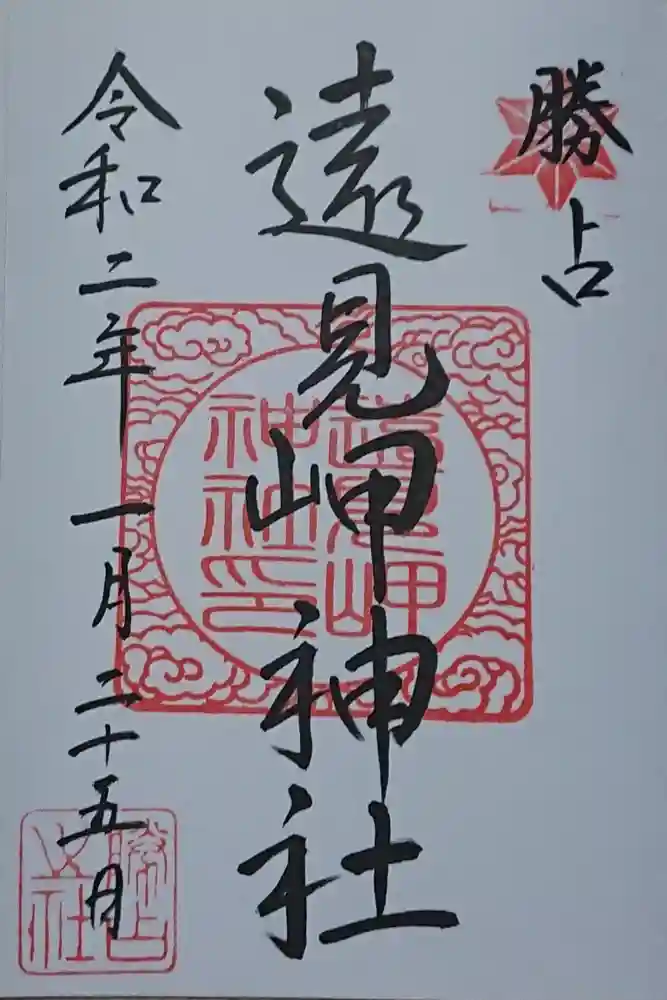 勝占
遠見岬神社
遠見岬
神社印
令和二年一月二十五日
勝占